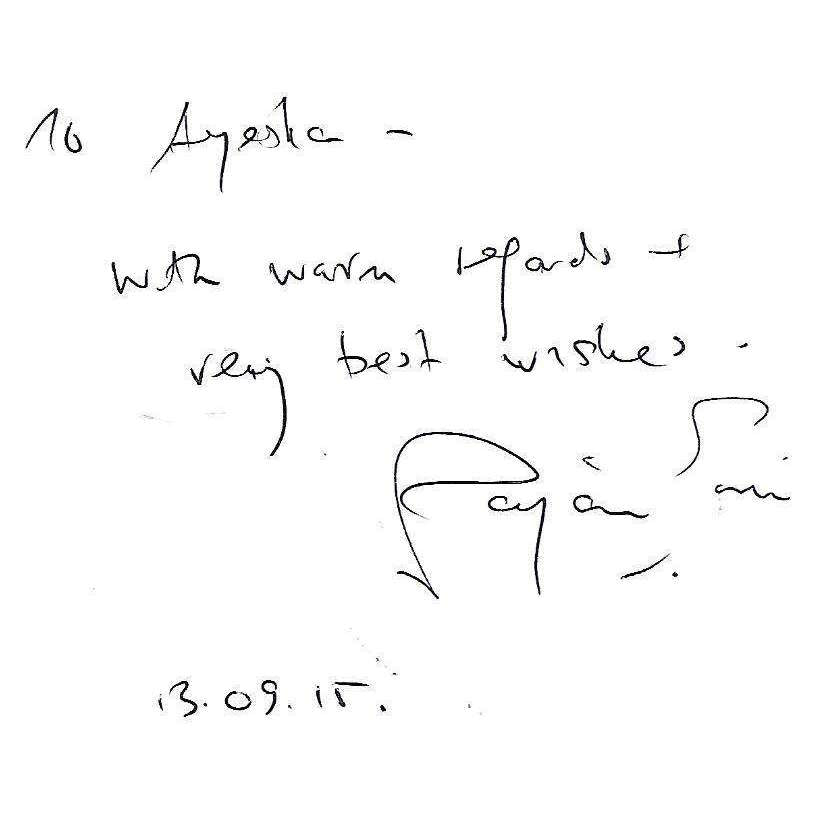 To Ayesha -
with warm regards +
very best wishes.
13.09.15.